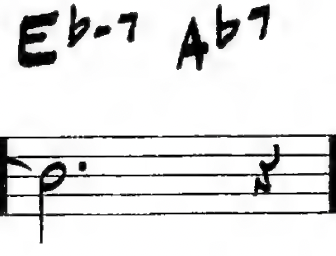 E♭-7 A♭7